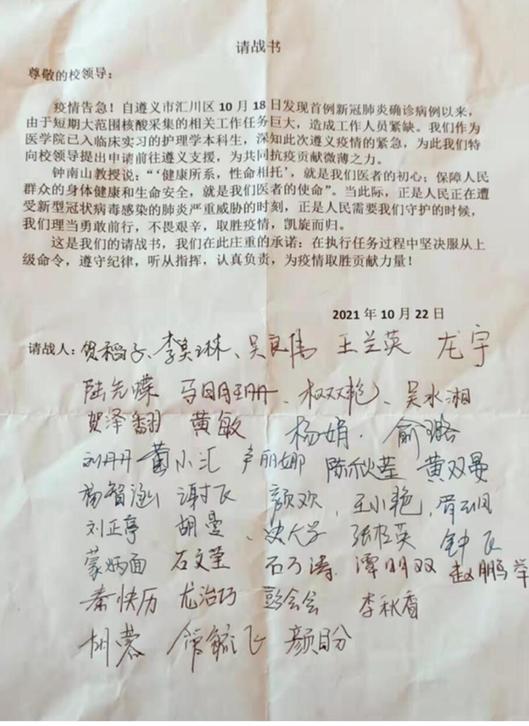 请战书
尊敬的校领导：
疫情告急！自遵义市汇川区 10 月 18 日发现首例新冠肺炎确诊病例以来，
由于短期大范围核酸采集的相关工作任务巨大，造成工作人员紧缺。我们作为
医学院已入临床实习的护理学本科生，深知此次遵义疫情的紧急，为此我们特
向校领导提出申请前往遵义支援，为共同抗疫贡献微薄之力。
钟南山教授说：“‘健康所系，性命相托’，就是我们医者的初心；保障人民
群众的身体健康和生命安全，就是我们医者的使命”。当此际，正是人民正在遭
受新型冠状病毒感染的肺炎严重威胁的时刻，正是人民需要我们守护的时候，
我们理当勇敢前行，不畏艰辛，取胜疫情，凯旋而归。
这是我们的请战书，我们在此庄重的承诺：在执行任务过程中坚决服从上
级命令，遵守纪律，听从指挥，认真负责，为疫情取胜贡献力量！
2021 年 10 月 22 日
请战人：贺稻子、李昊琳、吴良禹 王兰英 龙宇
陆先嶫 权双艳、吴水湘
贺泽翻 黄敏 杨娟. 俞璐
刘丹丹 董小汇 卢丽娜 陈秋莹 黄双曼
杨智涵 谢飞 颜欢 王小艳，
刘正亭 胡曼 史大学 张桂英 钟飞
蒙炳面 石文莹 石万涛 谭明双 赵鹏举
秦快历 尤治巧 彭会会 李秋香
胡蓉 管毓飞 颜盼